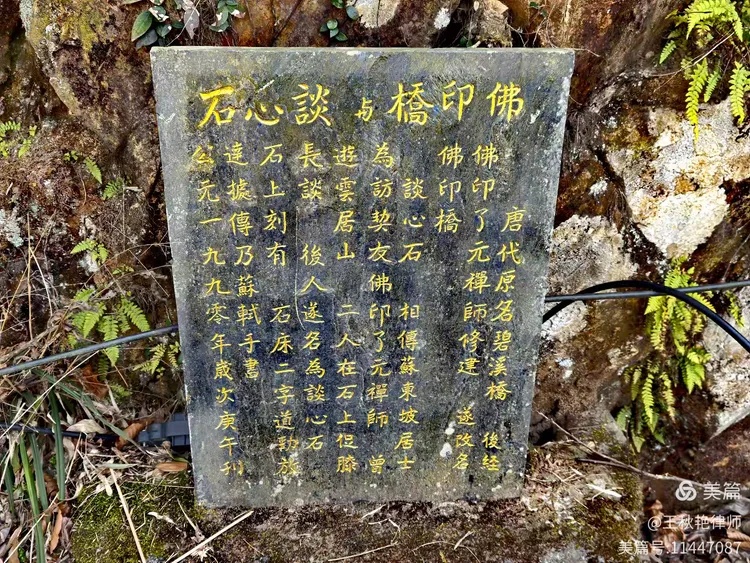 佛印橋 与 談心石
唐代原名碧溪橋 後経
佛印了元禪師修建 遂改名
佛印橋
談心石 相傳蘇東坡居士
為訪契友佛印了元禪師 曾
遊雲居山 二人在石上促膝
長談 後人遂名為談心石
石上刻有 石床二字遒勁放
達據傳乃蘇軾手書
公元一九九零年歲次庚午刊
美篇
@王秋艳律师
美篇号:11447087